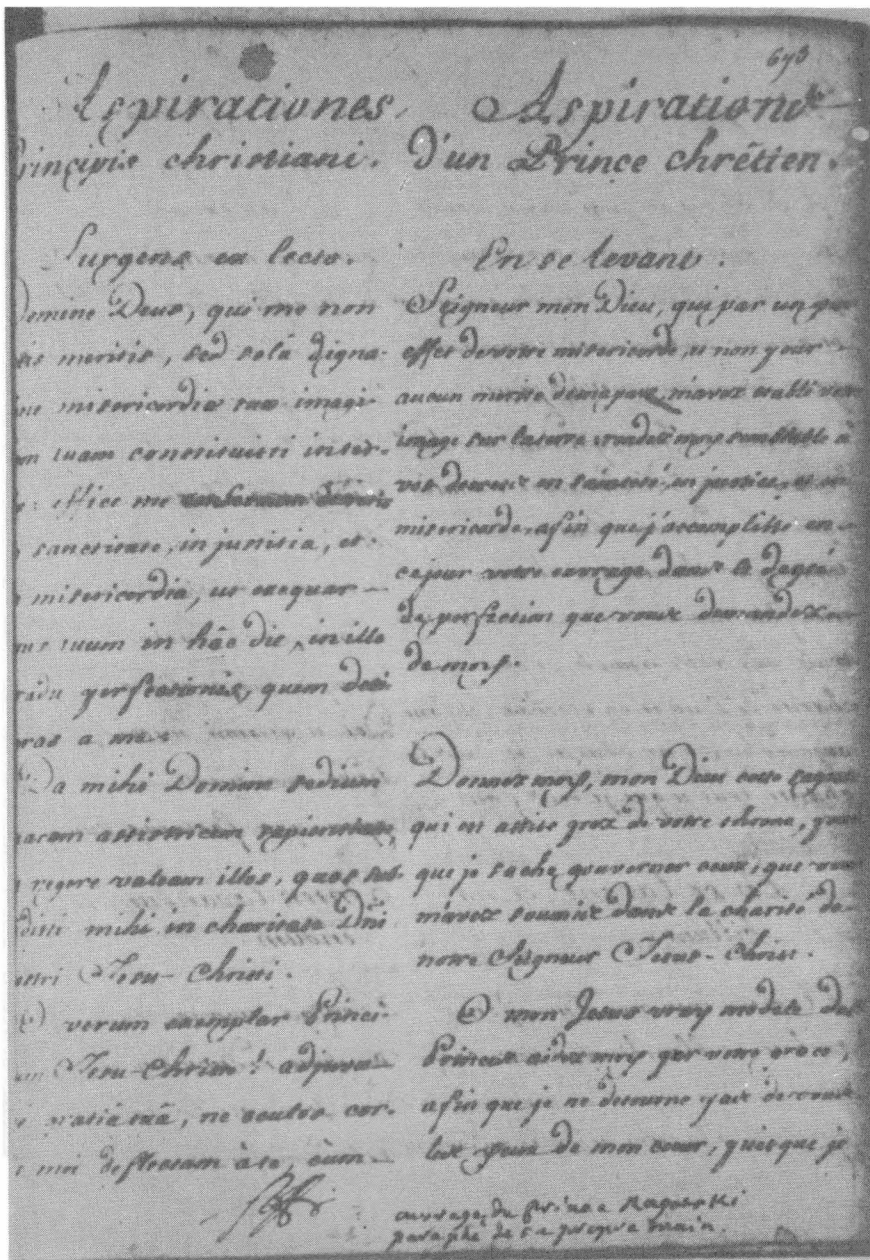 673
Aspirationes
Principis christiani.
Surgens ex lecto.
Domine Deus, qui me non
meritis, sed solâ digna-
misericordiæ tuæ imagi-
tuam constituisti inter-
effice me
sanctitate, in justitia, et
misericordia, ut exequar
tuum in hâc die, in illo
gradu perfectionis, quem desi
a me
Da mihi Domine sedium
assistricem sapientiam,
regere valeam illos, quos sub
didisti mihi in charitate Dni
nostri Jesu-Christi.
O verum exemplar Princi-
Jesu-Christe! adjuva
gratiâ tuâ, ne oculos cor-
mei deflectam à te, cùm
Aspirations
d'un Prince chrêtien.
En se levant.
Seigneur mon Dieu, qui par un pur
effet de votre misericorde, et non pour
aucun merite de ma part, m'avez etabli votre
image sur la terre, rendez moy semblable à
vous en sainteté, en justice, et en
misericorde, afin que j'accomplisse en
ce jour votre ouvrage dans le degré
de perfection que vous demandez
de moy.
Donnez moy, mon Dieu cette sagesse
qui est assise prez de votre throne, pour
que je sache gouverner ceux, que vous
m'avez soumis dans la charité de
notre Seigneur Jesus-Christ.
O mon Jesus vray modele des
Princes aidez moy par votre grâce,
afin que je ne detourne pas de vous
les yeux de mon coeur, puisque je
ouvrage du prince Ragotski
paraphé de sa propre main.